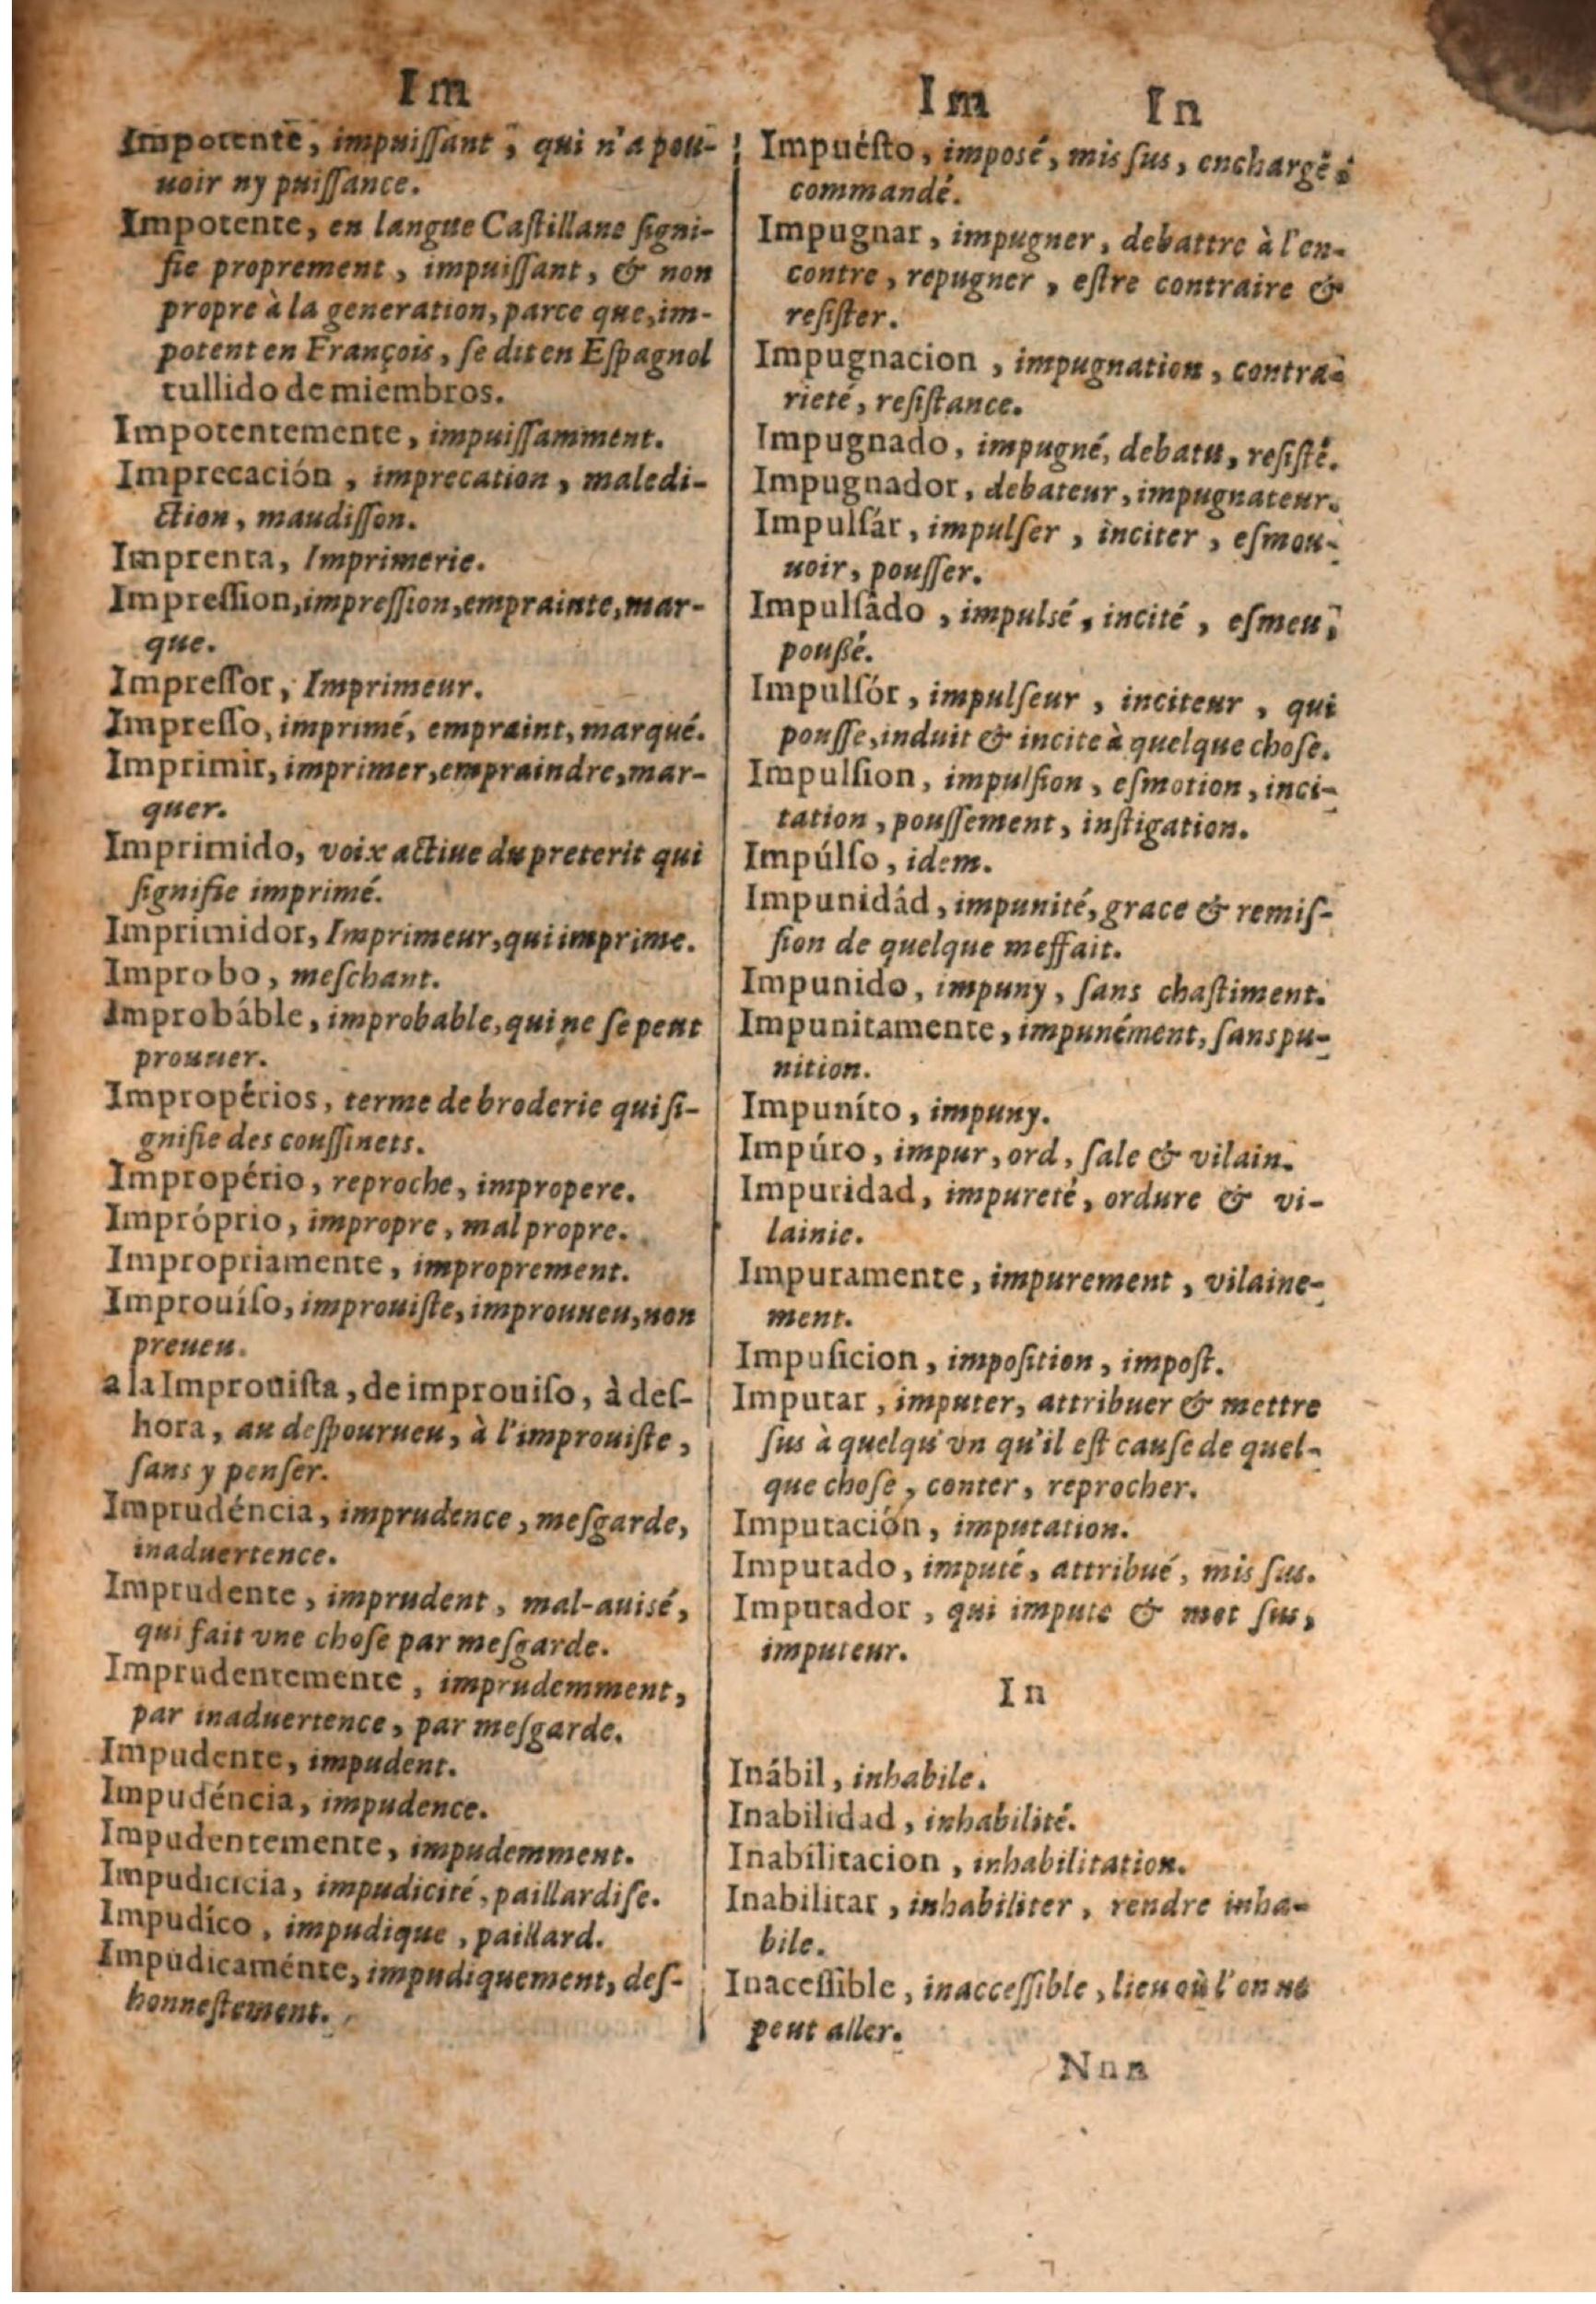 Im
Impotente, impuiſſant, qui n'a pou-
uoir ny puiſſance.
Impotente, en langue Caſtillane ſigni-
fie proprement, impuiſſant, & non
propre à la generation, parce que, im-
potent en François, ſe dit en Eſpagnol
tullido de miembros.
Impotentemente, impuiſſamment.
Imprecación, imprecation, maledi-
ction, maudiſſon.
Imprenta, Imprimerie.
Impreſſion, impreſſion, emprainte, mar-
que.
Impreſſor, Imprimeur.
Impreſſo, imprimé, empraint, marqué.
Imprimir, imprimer, empraindre, mar-
quer.
Imprimido, voix actiue du preterit qui
ſignifie imprimé.
Imprimidor, Imprimeur, qui imprime.
Improbo, meſchant.
Improbáble, improbable, qui ne ſe peut
prouuer.
Impropérios, terme de broderie qui ſi-
gnifie des couſſinets.
Impropério, reproche, impropere.
Impróprio, impropre, mal propre.
Impropriamente, improprement.
Improuíſo, improuiſte, improuueu, non
preueu.
a la Improuiſta, de improuiſo, à deſ-
hora, au deſpourueu, à l'improuiſte,
ſans y penſer.
Imprudéncia, imprudence, meſgarde,
inaduertence.
Imprudente, imprudent, mal-auisé,
qui fait vne choſe par meſgarde.
Imprudentemente, imprudemment,
par inaduertence, par meſgarde.
Impudente, impudent.
Impudéncia, impudence.
Impudentemente, impudemment.
Impudicicia, impudicité, paillardiſe.
Impudíco, impudique, paillard.
Impudicaménte, impudiquement, deſ-
honneſtement.
Im In
Impuéſto, imposé, mis ſus, enchargé,
commandé.
Impugnar, impugner, debattre à l'en-
contre, repugner, eſtre contraire &
reſiſter.
Impugnacion, impugnation, contra-
rieté, reſiſtance.
Impugnado, impugné, debatu, reſiſté.
Impugnador, debateur, impugnateur.
Impulſár, impulſer, inciter, eſmou-
uoir, pouſſer.
Impulſádo, impulsé, incité, eſmeu,
poußé.
Impulſór, impulſeur, inciteur, qui
pouſſe, induit & incite à quelque choſe.
Impulſion, impulſion, eſmotion, inci-
tation, pouſſement, inſtigation.
Impúlſo, idem.
Impunidád, impunité, grace & remiſ-
ſion de quelque meffait.
Impunido, impuny, ſans chaſtiment.
Impunitamente, impunément, ſans pu-
nition.
Impuníto, impuny.
Impúro, impur, ord, ſale & vilain.
Impuridad, impureté, ordure & vi-
lainie.
Impuramente, impurement, vilaine-
ment.
Impuſicion, impoſition, impoſt.
Imputar, imputer, attribuer & mettre
ſus à quelqu'vn qu'il eſt cauſe de quel-
que choſe, conter, reprocher.
Imputación, imputation.
Imputado, imputé, attribué, mis ſus.
Imputador, qui impute & met ſus,
imputeur.
In
Inábil, inhabile.
Inabilidad, inhabilité.
Inabilitacion, inhabilitation.
Inabilitar, inhabiliter, rendre inha-
bile.
Inaceſſible, inacceſſible, lieu où l'on ne
peut aller.
Nnn